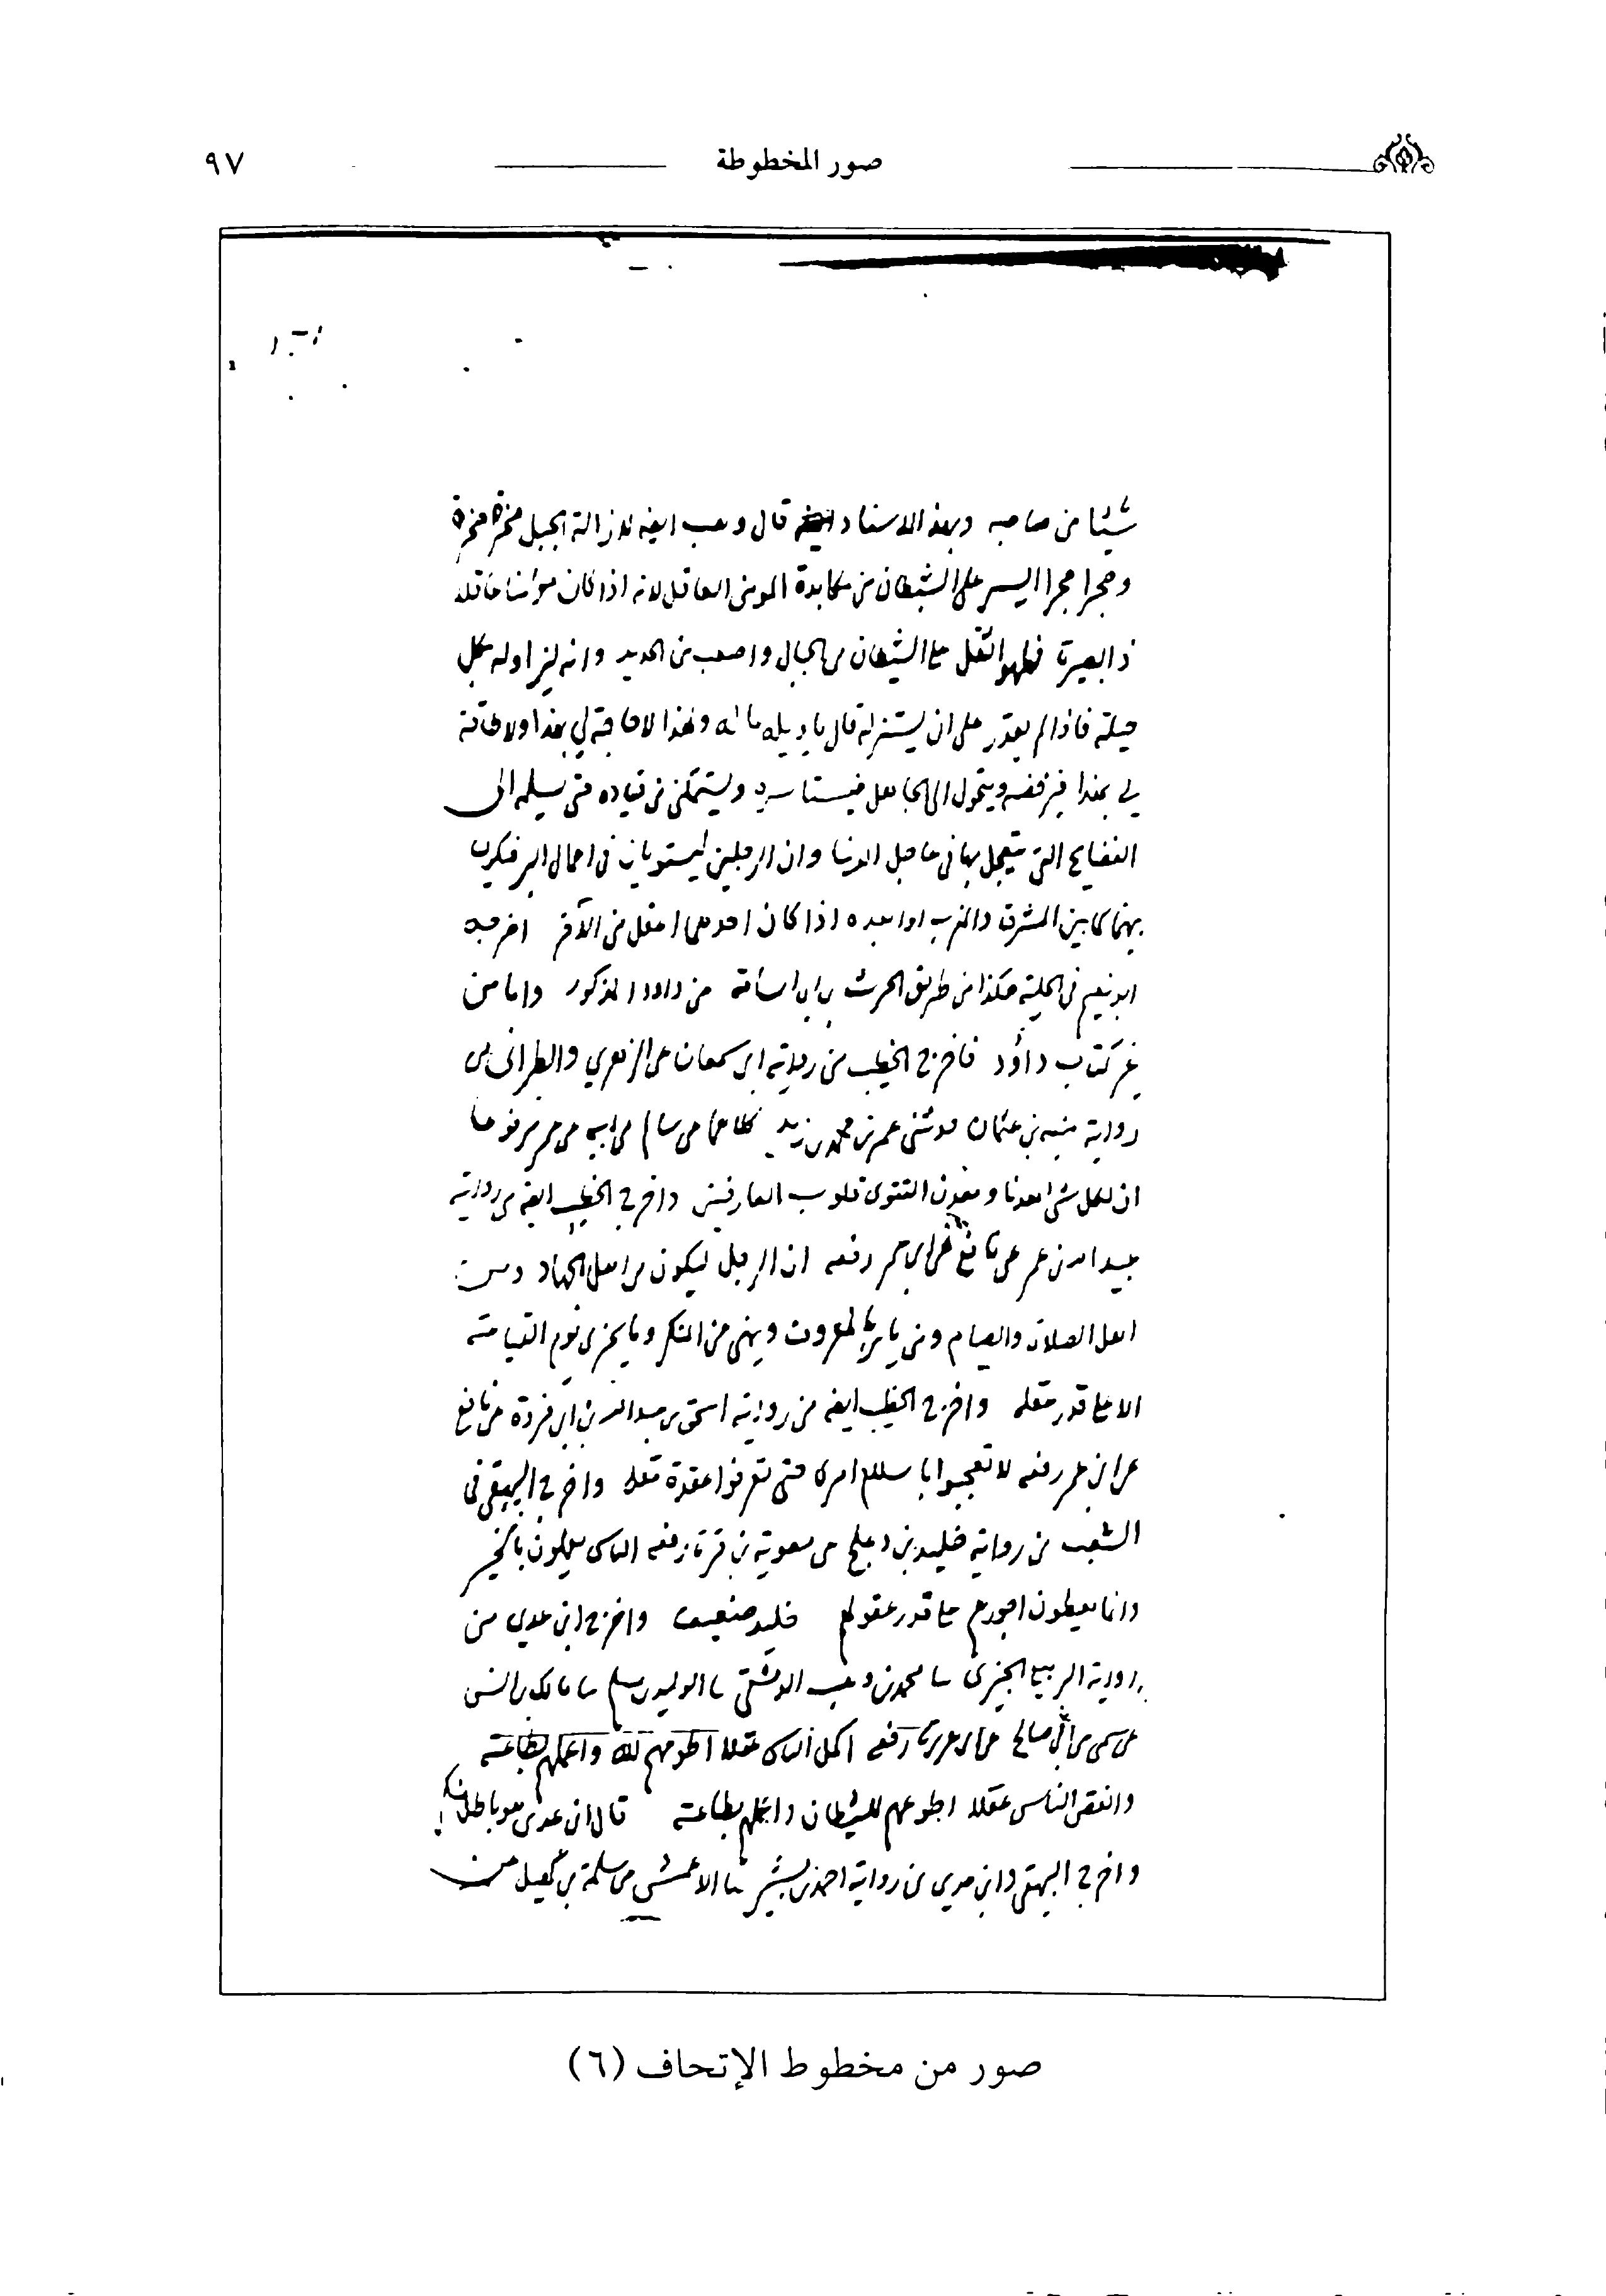 صور المخطوطة
٩٧
شيئا من صاحبه وبهذا الاسناد قال وهب ايضه لازالة الجبل صخرة صخرة
وحجرا حجرا ايسر على الشيطان من مكابدة المومن العاقل لانه اذا كان مومنا عاقلا
ذا بصيرة فلهو اثقل على الشيطان من الجبال واصعب من الحديد وانه ليزاوله بكل
حيلة فاذا لم يقدر على ان يستزله قال يا ويله ما له ولهذا لا حاجة لي بهذا ولا طاقة
لي بهذا فيرفضه ويتحول الى الجاهل فيستاسره ويستمكن من قياده حتى يسلمه الى
الفضايح التي يتعجل بها في عاجل الدنيا وان الرجلين ليستويان في اعمال البر فيكون
بينهما كما بين المشرق والمغرب او ابعد اذا كان احدهما اعقل من الآخر اخرجه
ابو نعيم في الحلية هكذا من طريق الحرث بن ابي اسامة من داود المذكور واما من
غير كتاب داود فاخرج الخطيب من رواية ابن سمعان عن الزهري والطبراني من
رواية منبه بن عثمان حدثني عمر بن محمد بن زيد كلاهما عن سالم عن ابيه عن عمر مرفوعا
ان لكل شي معدنا ومعدن التقوى قلوب العارفين واخرج الخطيب ايضه من رواية
عبيد الله بن عمر عن نافع عن ابن عمر رفعه ان الرجل ليكون من اهل الجهاد ومن
اهل الصلاة والصيام وممن يامر بالمعروف وينهى عن المنكر وما يجزى يوم القيامة
الا على قدر عقله واخرج الخطيب ايضه من رواية اسحق بن عبد الله بن ابي فروة عن نافع
عن ابن عمر رفعه لا تعجبوا باسلام امرئ حتى تعرفوا عقدة عقله واخرج البيهقي في
الشعب من رواية خليد بن دعلج عن معوية بن قرة رفعه الناس يعملون بالخير
وانما يعطون اجورهم على قدر عقولهم خليد ضعيف واخرج ابن عدي من
رواية الربيع الجيزي ثنا محمد بن وهب الدمشقي ثنا الوليد بن مسلم ثنا مالك بن انس
عن سمي عن ابي صالح عن ابي هريرة رفعه اكمل الناس عقلا اطوعهم لله واعملهم بطاعته
وانقص الناس عقلا اطوعهم للشيطان واعملهم بطاعته قال ابن عدي هو باطل منكر
واخرج البيهقي وابن عدي من رواية احمد بن بشير ثنا الاعمش عن سلمة بن كهيل عن
صور من مخطوط الإتحاف (٦)